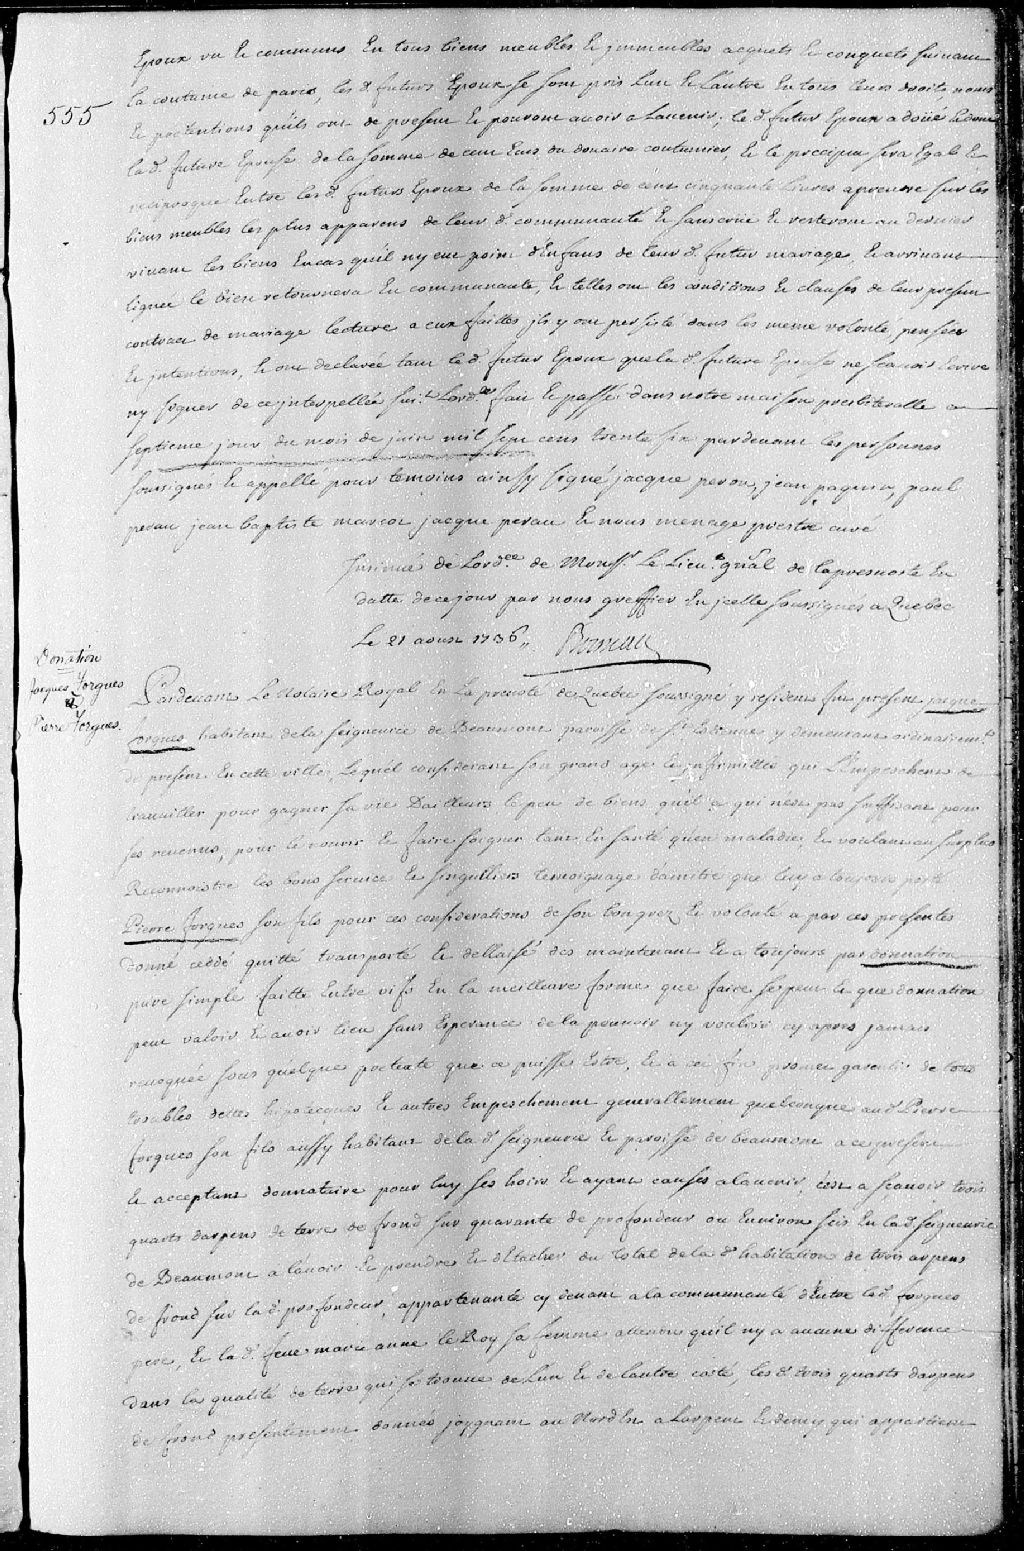 Epoux un & communs En tous biens meubles & jmmeubles acquets & conquets suivant
la coutume de paris, les d. futurs Epoux se sont pris Lun & Lautre En tous leurs droits noms
555
& pretentions quils ont de present & pouront avoir a Lavenir, le d. futur Epoux a doüé & doue
la d. future Epouse de la somme de cent Ecus du douaire coutumier, & le preciput sera Egal &
reciproque Entre les d. futurs Epoux de la somme de cent cinquante Livres a prendre sur les
biens meubles les plus apparens de leur d. communauté & sans crüe & resteront au dernier
vivant les biens En cas quil ny eut point dEnfans de leur d. futur mariage & arrivant
lignée le bien retournera En communauté, & telles ont les conditions & clauses de leur present
contract de mariage lecture a eux faittes jls y ont persisté dans les meme volonté, pensées
& jntentions, & ont declarée tant le d. futur Epoux que la d. future Epouse ne scavoir Ecrire
ny signer de ce jnterpellée suiv.t Lord.ce fait & passé dans notre maison presbiteralle ce
septieme jour du mois de juin mil sept cens trente six pardevant les personnes
soussignes & appellé pour temoins ainsy signé jacque perou, jean paquin, paul
perau jean baptiste marcot jacque perau & nous menage prestre curé
Insinué de Lord.ce de Mons.r Le Lieu.t gñal de la prevosté En
datte de ce jour par nous greffier En jcelle soussignés a Quebec
Le 21 aoust 1736 ,, Boiseau
Donation
Jacques Forgues
&
Pierre Forgues.
Pardevant Le Notaire Royal En La prevosté de Quebec soussigné y residen fut present jacque
forgues habitant de la seigneurie de Beaumont paroisse de S.t Estienne y demeurant ordinairem.t
de present En cette ville, Lequel considerant son grand age & infirmittés qui L'Empeschent de
travailler pour gagner sa vie Dailleurs le peu de biens quil a qui n'est pas suffisant pour
ses revenus, pour le nourir & faire soigner tant En santé quen maladies, & voulant au surplus
Reconnoistre les bons services & singulliers temoignage damitié que luy a toujours porté
Pierre forgues son fils pour ces considerations de son bon gré & volonté a par ces presentes
donné ceddé quitté transporté & dellaissé des maintenant & a toujours par donnation
pure simple faitte Entre vifs En la meilleure forme que faire se peut & que donnation
peut valoir & avoir lieu sans Esperance de la pouvoir ny vouloir cy apres jamais
revoquée sous quelque pretexte que ce puisse Estre, & a cet fin promet garentir de tous
troubles dettes hipotecques & autres Empeschement generallement quelconque au d. Pierre
forgues son fils aussy habitant de la d. seigneurie & paroisse de beaumont a ce present
& acceptant donnataire pour luy ses hoirs & ayant causes a lavenir, cest a scavoir trois
quarts darpens de terre de frond sur quarante de profondeur ou Environ scis En la d. seigneurie
de Beaumont a lavoir & prendre & detacher du total de la d. habitation de trois arpens
de frond sur la d. profondeur, appartenante cy devant a la communauté dEntre led. forgues
pere, & la d. feue marie anne le Roy sa femme attendu quil ny a aucune difference
dans la qualité de terre qui se trouve de Lun & de lautre costé, les d. trois quarts darpens
de frond presentement donnés joygnant au Nord Est a Larpent & demy qui appartient